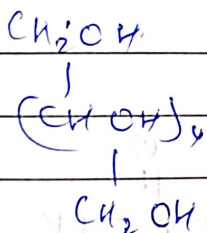 CH₂OH
|
(CHOH)₄
|
CH₂OH